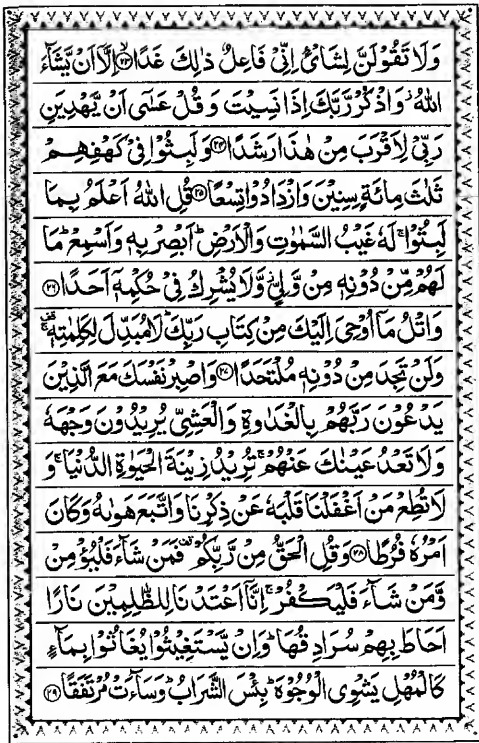 وَلَا تَقُوْلَنَّ لِشَایْءٍ اِنِّیْ فَاعِلٌ ذٰلِكَ غَدًا ﴿۲۳﴾ اِلَّاۤ اَنْ یَّشَآءَ
اللّٰهُ ؗ وَاذْكُرْ رَّبَّكَ اِذَا نَسِیْتَ وَ قُلْ عَسٰۤی اَنْ یَّهْدِیَنِ
رَبِّیْ لِاَقْرَبَ مِنْ هٰذَا رَشَدًا ﴿۲۴﴾ وَ لَبِثُوْا فِیْ كَهْفِهِمْ
ثَلٰثَ مِائَةٍ سِنِیْنَ وَازْدَادُوْا تِسْعًا ﴿۲۵﴾ قُلِ اللّٰهُ اَعْلَمُ بِمَا
لَبِثُوْا ۚ لَهٗ غَیْبُ السَّمٰوٰتِ وَ الْاَرْضِ ؕ اَبْصِرْ بِهٖ وَ اَسْمِعْ ؕ مَا
لَهُمْ مِّنْ دُوْنِهٖ مِنْ وَّلِیٍّ ؗ وَّلَا یُشْرِكُ فِیْ حُكْمِهٖۤ اَحَدًا ﴿۲۶﴾
وَ اتْلُ مَاۤ اُوْحِیَ اِلَیْكَ مِنْ كِتَابِ رَبِّكَ ؕ لَا مُبَدِّلَ لِكَلِمٰتِهٖ ۫ۚ
وَلَنْ تَجِدَ مِنْ دُوْنِهٖ مُلْتَحَدًا ﴿۲۷﴾ وَاصْبِرْ نَفْسَكَ مَعَ الَّذِیْنَ
یَدْعُوْنَ رَبَّهُمْ بِالْغَدٰوةِ وَ الْعَشِیِّ یُرِیْدُوْنَ وَجْهَهٗ
وَلَا تَعْدُ عَیْنٰكَ عَنْهُمْ ۚ تُرِیْدُ زِیْنَةَ الْحَیٰوةِ الدُّنْیَا ۚ وَ
لَا تُطِعْ مَنْ اَغْفَلْنَا قَلْبَهٗ عَنْ ذِكْرِنَا وَ اتَّبَعَ هَوٰىهُ وَ كَانَ
اَمْرُهٗ فُرُطًا ﴿۲۸﴾ وَ قُلِ الْحَقُّ مِنْ رَّبِّكُمْ ۫ فَمَنْ شَآءَ فَلْیُؤْمِنْ
وَّ مَنْ شَآءَ فَلْیَكْفُرْ ۙ اِنَّاۤ اَعْتَدْنَا لِلظّٰلِمِیْنَ نَارًا
اَحَاطَ بِهِمْ سُرَادِقُهَا ؕ وَ اِنْ یَّسْتَغِیْثُوْا یُغَاثُوْا بِمَآءٍ
كَالْمُهْلِ یَشْوِی الْوُجُوْهَ ؕ بِئْسَ الشَّرَابُ ؕ وَسَآءَتْ مُرْتَفَقًا ﴿۲۹﴾